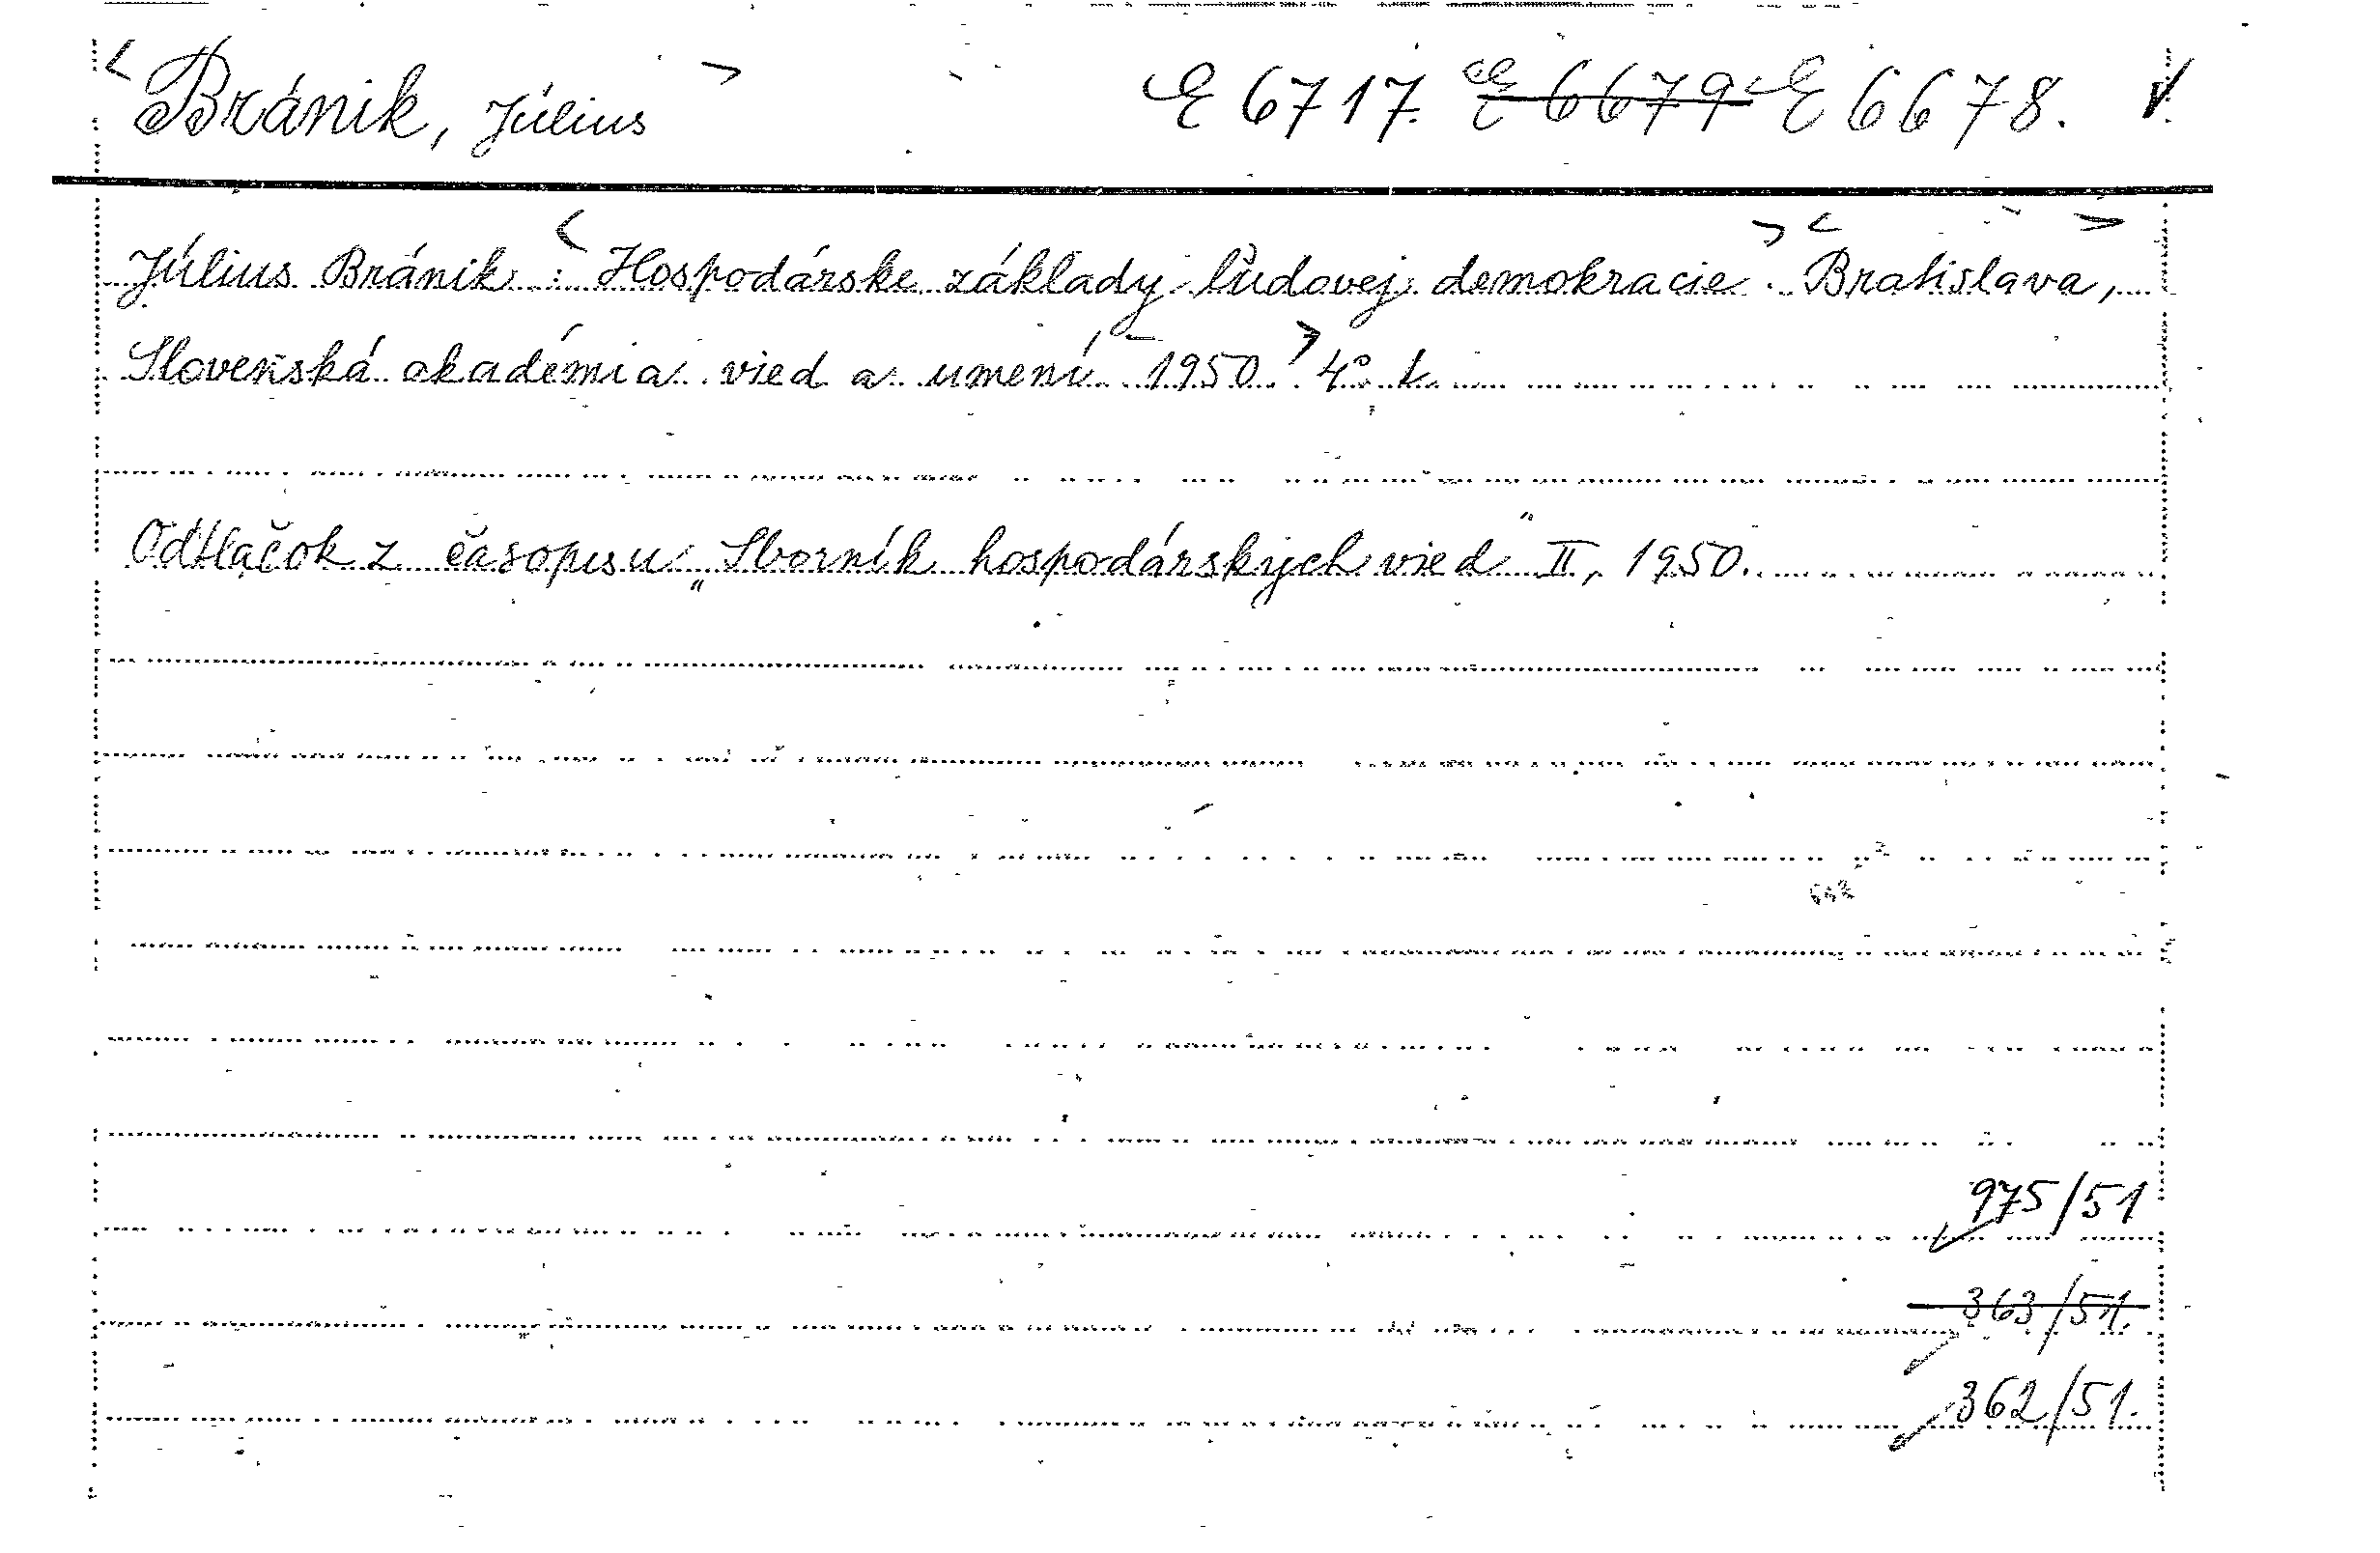 <Bránik, Július> E 6717. E 6679 E 6678. V.
Július Bránik: <Hospodárske základy ľudovej demokracie.> <Bratislava,>
Slovenská akadémia vied a umení <1950> 4° t.
Odtlačok z časopisu „Sborník hospodárskych vied" II, 1950.
975/51
363/51.
362/51.